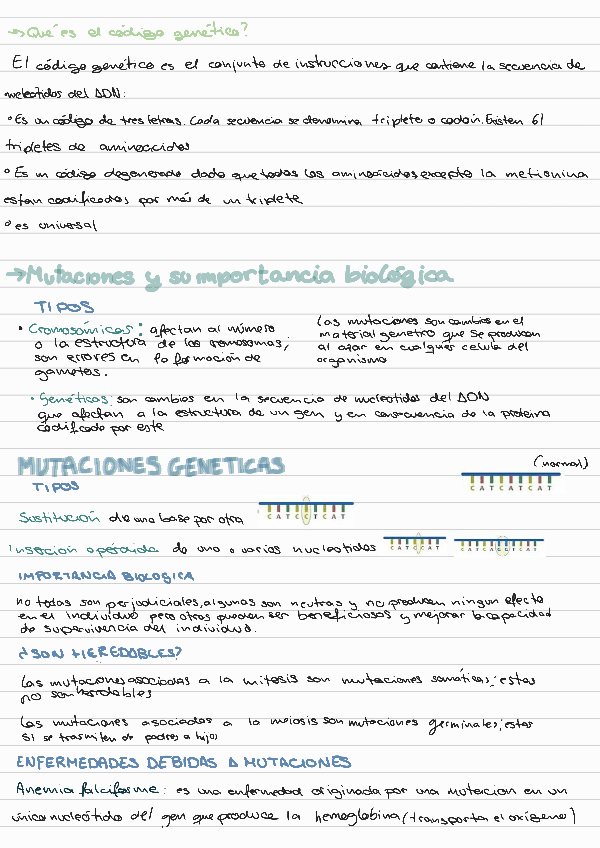 →¿Qué es el código genético?
El código genético es el conjunto de instrucciones que contiene la secuencia de
nucleótidos del ADN:
• Es un código de tres letras. Cada secuencia se denomina triplete o codón. Existen 61
tripletes de aminoácidos
• Es un código degenerado dado que todos los aminoácidos excepto la metionina
estan codificados por más de un triplete
• es universal
→Mutaciones y su importancia biológica
TIPOS
• Cromosómicas: afectan al número
o la estructura de los cromosomas,
son errores en la formación de
gametos.
Las mutaciones son cambios en el
material genetico que se producen
al azar en cualquier celula del
organismo
• Genéticas: son cambios en la secuencia de nucleotidos del ADN
que afectan a la estructura de un gen y en consecuencia de la proteina
codificada por este
MUTACIONES GENETICAS
(normal)
TIPOS
CATCATCAT
Sustitución de una base por otra
Inserción o pérdida de uno o varios nucleotidos
IMPORTANCIA BIOLOGICA
no todas son perjudiciales, algunas son neutras y no producen ningun efecto
en el individuo pero otras pueden ser beneficiosas y mejorar la capacidad
de supervivencia del individuo.
¿SON HEREDABLES?
Las mutaciones asociadas a la mitosis son mutaciones somáticas; estas
no son heredables
Las mutaciones asociadas a la meiosis son mutaciones germinales; estas
si se trasmiten de padres a hijos
ENFERMEDADES DEBIDAS A MUTACIONES
Anemia falciforme: es una enfermedad originada por una mutacion en un
único nucleótido del gen que produce la hemoglobina (transporta el oxígeno)